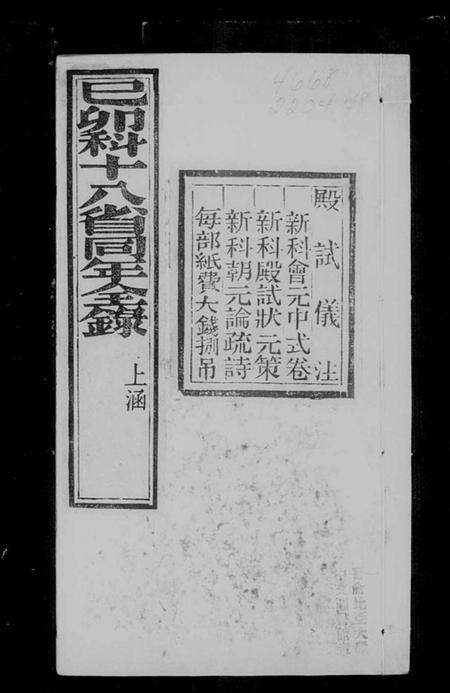 4668
殿試儀注
新科會元中式卷
新科殿試狀元策
新科朝元論疏詩
每部紙費大錢捌吊
己卯科十八省同年全錄
上函